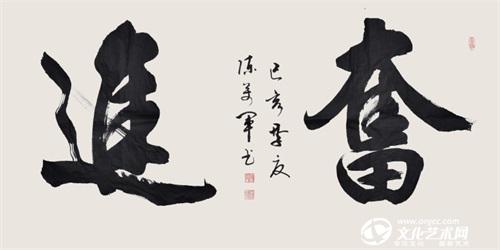 奮進
己亥夏
陈军书
www.orgcc.com
文化艺术网